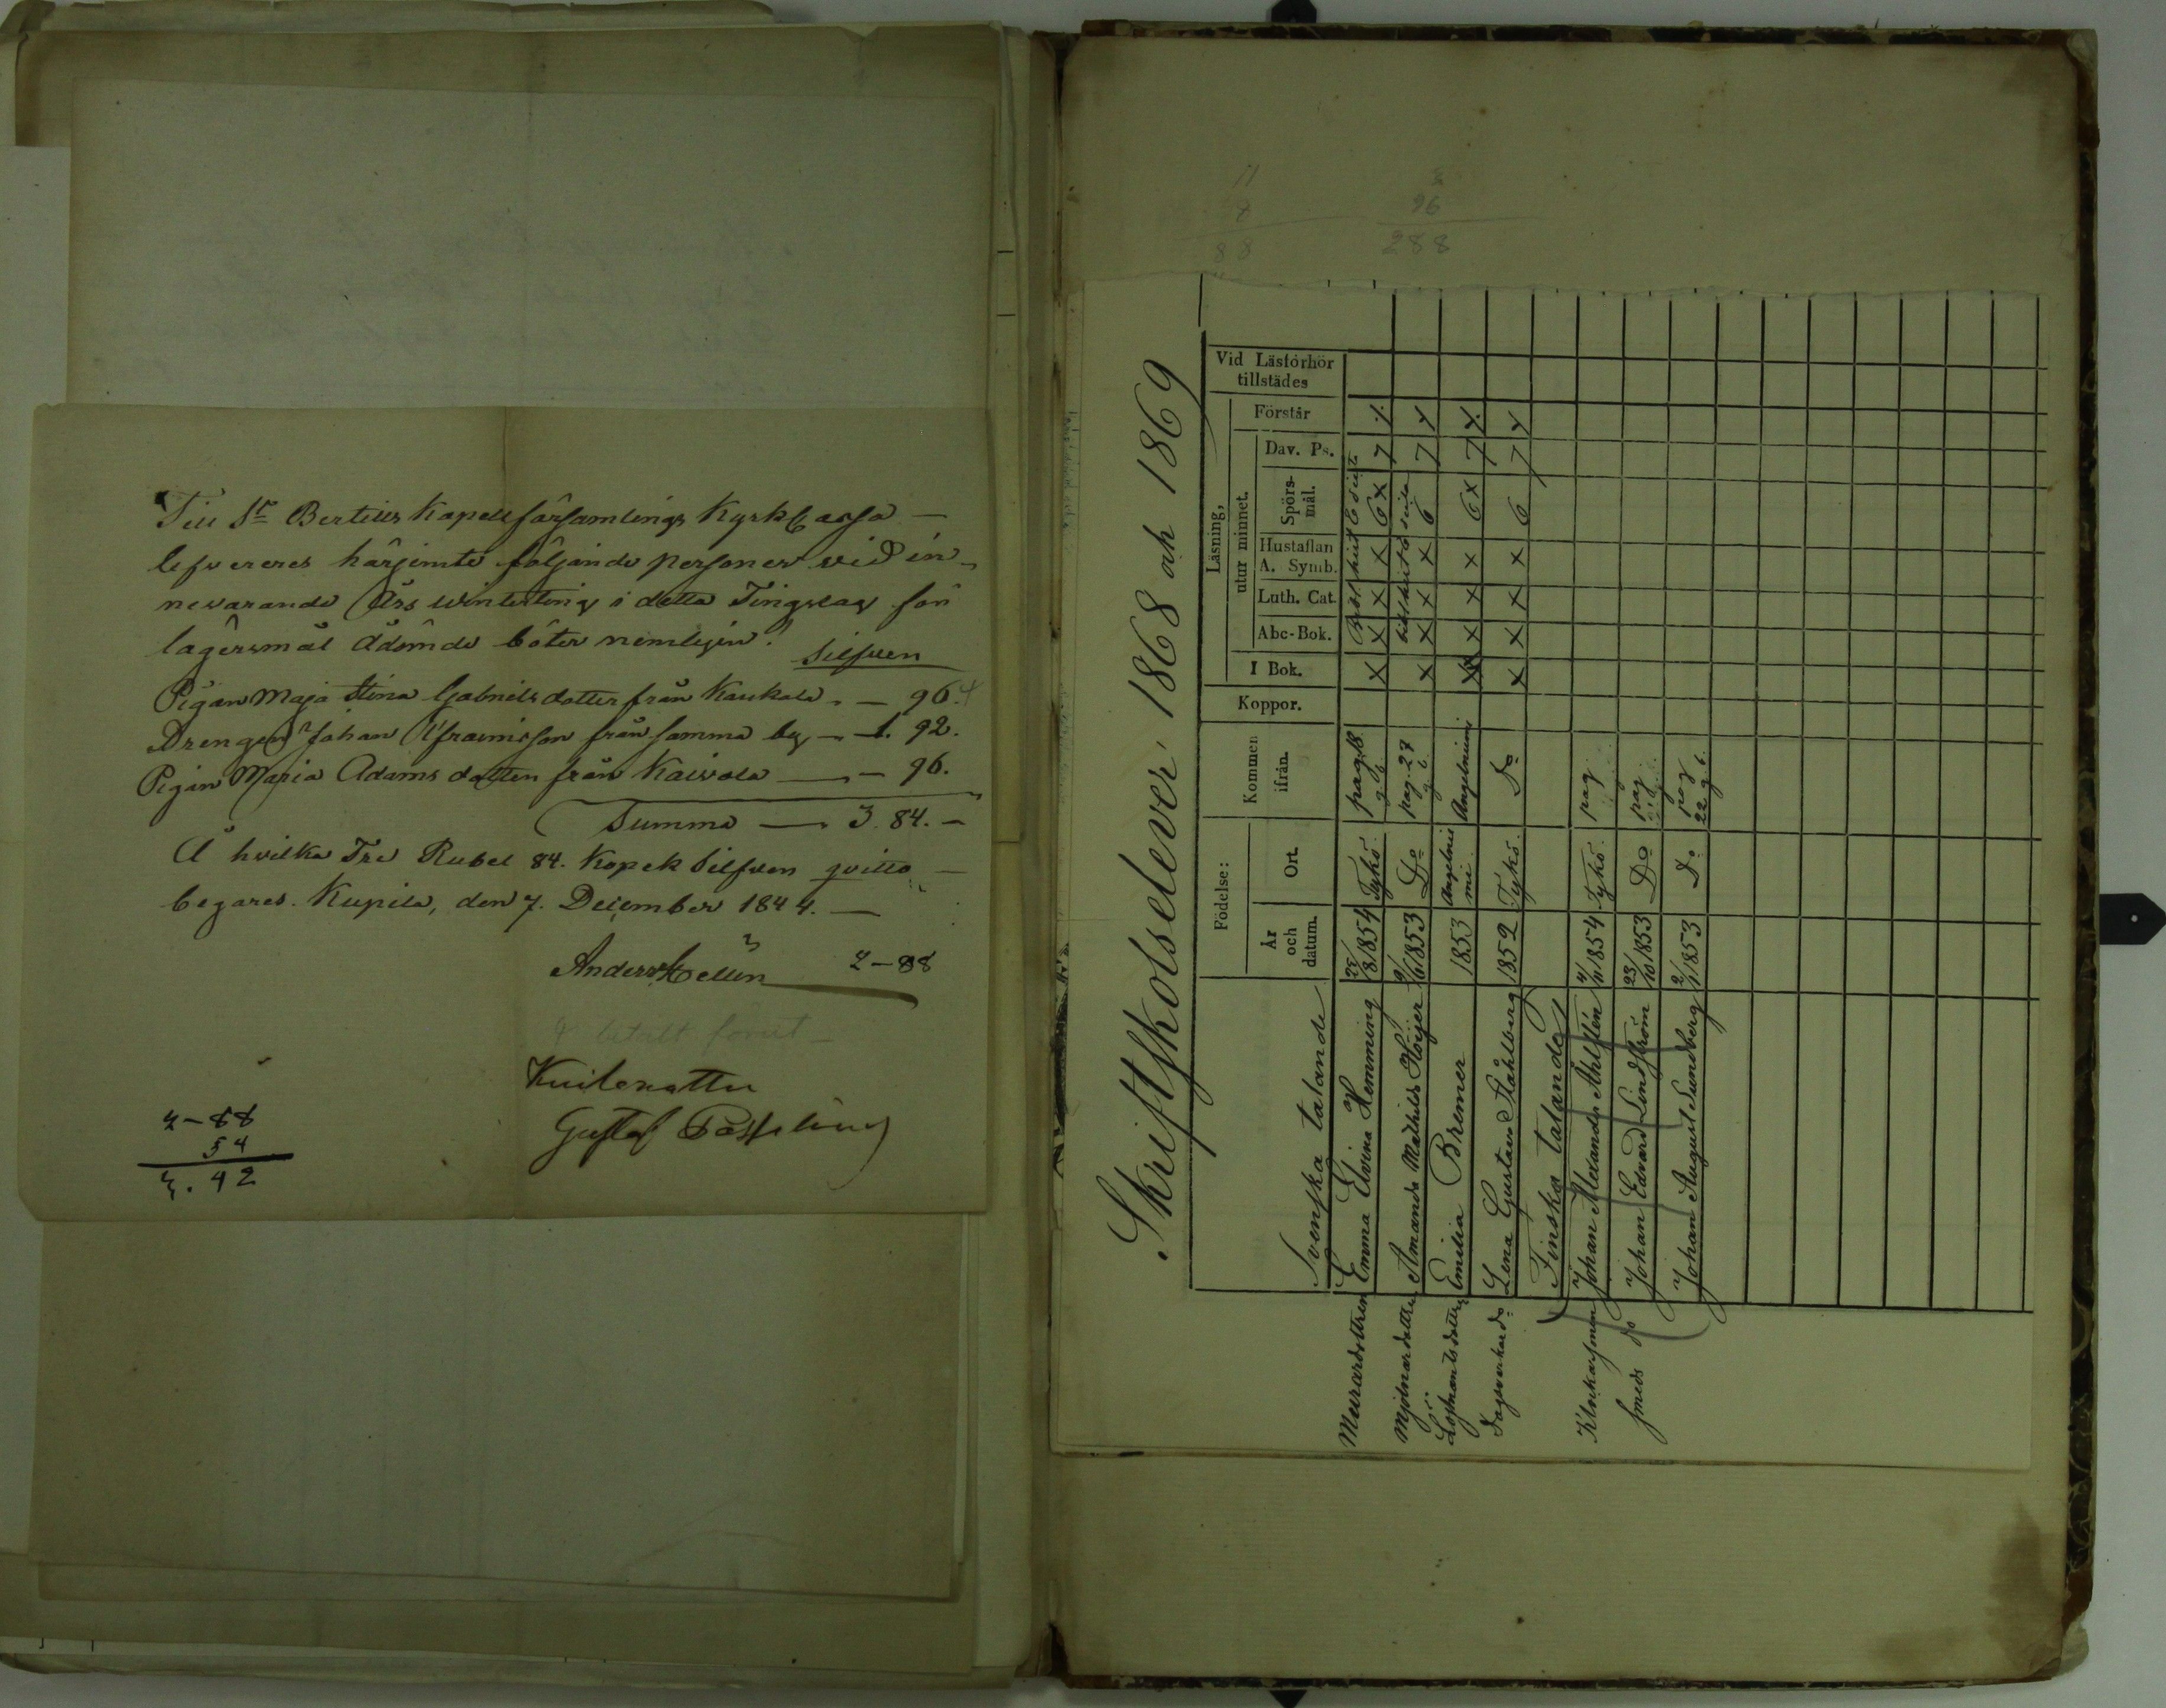 Till St Bertills Kapellsförsamlings Kyrkcassa —
lefvereres härjemte följande personer vid in-
nevarande Års Winterting i detta Tingslag för
lägersmål ådömde böter nemligen!
Silfver
Pigan Maja Stina Gabrielsdotter från Kaukola — 96.
Drengen Johan Efraimsson från samma by — 1. 92.
Pigan Maria Adamsdotter från Kaivola — 96.
Summa — 3. 84. —
Å hvilka Tre Rubel 84. Kopek Silfver qvitto —
begäres. Kupila, den 7. December 1844. —
Anders Hellén 2-88
betalt förut —
Kuiteerattu
Gustaf
2-88
54
42
11
8
88
96
288
Skriftskolselever 1868 och 1869
Födelse:
År och datum.
Ort.
Kommen ifrån.
Koppor.
Läsning,
I Bok.
utur minnet.
Abc-Bok.
Luth. Cat.
Hustaflan A. Symb.
Spörs-mål.
Dav. Ps.
Förstår
Vid Läsförhör tillstädes
Svenska talande
Emma Elvina Hemming 22/8 1854 Tykö pag 18 x x x x 6x 7
Mjölnardotter Amanda Mathilda Höijer 9/6 1853 Do pag. 27 x x x x 6 7
Emilia Bremer 1853 Angelniemi Angelniemi x x x x 6x 7
Lena Gustava Ståhlberg 1852 Tykö Do x x x x 6 7
Finska talande
Klockarson Johan Alexander Ahlstén 4/11 1854 Tykö pag
Smeds do Johan Edvard Lindström 23/10 1853 Do pag
Johan August Sundberg 2/1 1853 Do pag 22